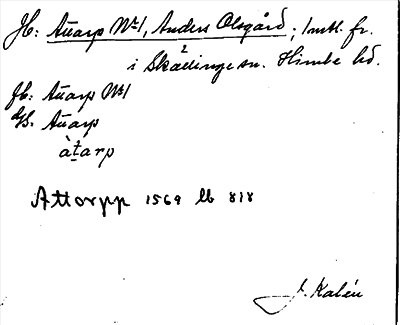 Jb: Attarp Nr 1, Anders Olsgård; Inntl. fr.
i Skällinge sn. Himle hd.
Jb: Attarp Nr 1
Gs. Attarp
àtarp
Attorpp 1569 lb 818
J. Kalén